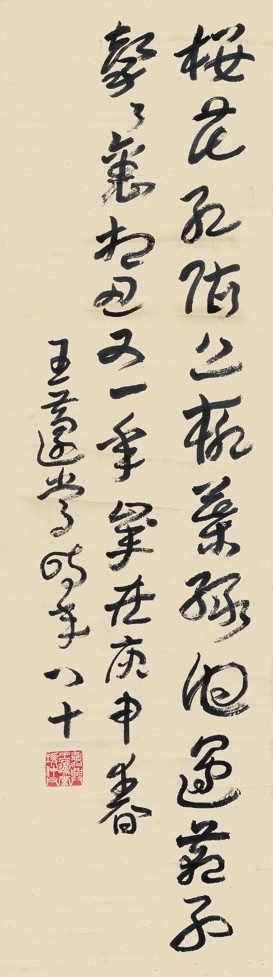 櫻花紅陌上柳葉綠池邊燕子
聲々裏相思又一年歲在庚申春
王蘧常時年八十